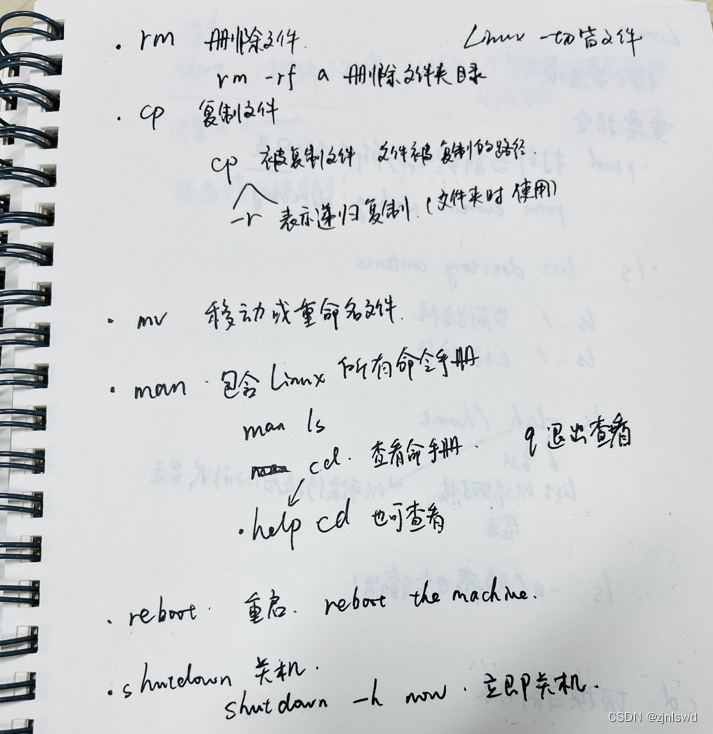 · rm 删除文件. Linux 一切皆文件
rm -rf a 删除文件夹目录
· cp 复制文件
cp 被复制文件 文件被复制的路径.
-r 表示递归复制.(文件夹时使用)
· mv 移动或重命名文件.
· man · 包含Linux 所有命令手册
man ls
cd. 查看命手册. q 退出查看
· help cd 也可查看
· reboot · 重启. reboot the machine.
· shutdown 关机.
shutdown -h now . 立即关机.
CSDN @zjnlswd